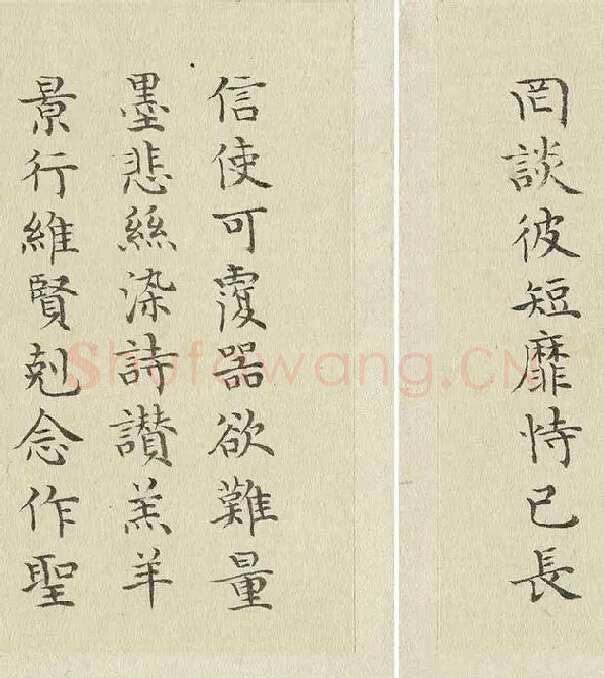 罔談彼短靡恃已長
信使可覆器欲難量
墨悲絲染詩讃羔羊
景行維賢剋念作聖
Shufawang.CN